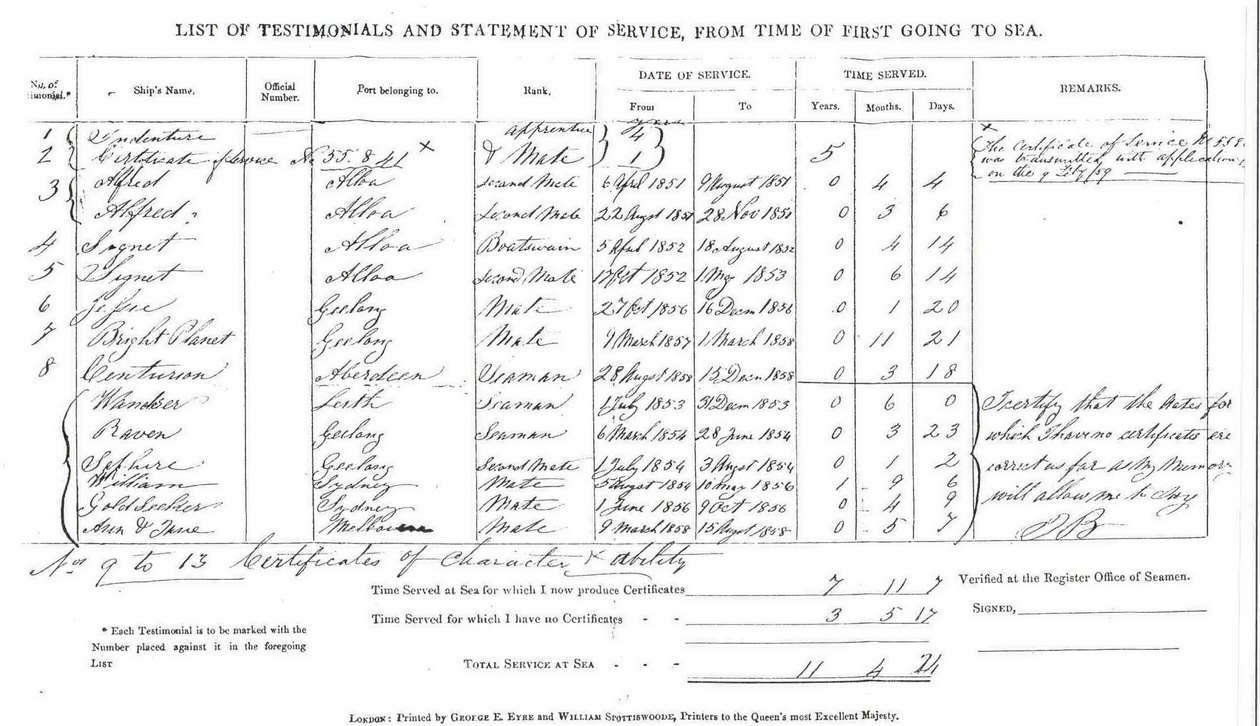 LIST OF TESTIMONIALS AND STATEMENT OF SERVICE, FROM TIME OF FIRST GOING TO SEA.
No. of timonial.* Ship's Name. Official Number. Port belonging to. Rank. DATE OF SERVICE. TIME SERVED. REMARKS.
From To Years. Months. Days.
1 Indenture apprentice years 4
2 Certificate of service No 55.841 x & Mate 1 5 x The certificate of Service No 558
was transmitted with application
on the 9 /59
3 Alfred Alloa Second Mate 6 Apl 1851 9 August 1851 0 4 4
Alfred Alloa Second Mate 22 Augst 1851 28 Nov 1851 0 3 6
4 Sygnet Alloa Boatswain 5 April 1852 18 August 1852 0 4 14
5 Signet Alloa Second Mate 17 Oct 1852 1 May 1853 0 6 14
6 Jessie Geelong Mate 27 Oct 1856 16 Decm 1856 0 1 20
7 Bright Planet Geelong Mate 9 March 1857 1 March 1858 0 11 21
8 Centurion Aberdeen Seaman 28 Augst 1858 15 Decm 1858 0 3 18
Wanderer Leith Seaman 1 July 1853 31 Decm 1853 0 6 0 I certify that the dates for
Raven Geelong Seaman 6 March 1854 28 June 1854 0 3 23 which I have no certificates are
Saphire Geelong Second Mate 1 July 1854 3 Augst 1854 0 1 2 correct as far as my memory
William Sydney Mate 5 Augst 1854 10 may 1856 1 9 6 will allow me to say
Gold Seeker Sydney Mate 1 June 1856 9 Oct 1856 0 4 9
Ann & Jane Melbourne Mate 9 March 1858 15 Augst 1858 0 5 7 JB
Nos 9 to 13 Certificates of Character & ability
Time Served at Sea for which I now produce Certificates 7 11 7 Verified at the Register Office of Seamen.
Time Served for which I have no Certificates - - 3 5 17 SIGNED,
* Each Testimonial is to be marked with the
Number placed against it in the foregoing
LIST
TOTAL SERVICE AT SEA - - - 11 4 24
LONDON: Printed by GEORGE E. EYRE and WILLIAM SPOTTISWOODE, Printers to the Queen's most Excellent Majesty.